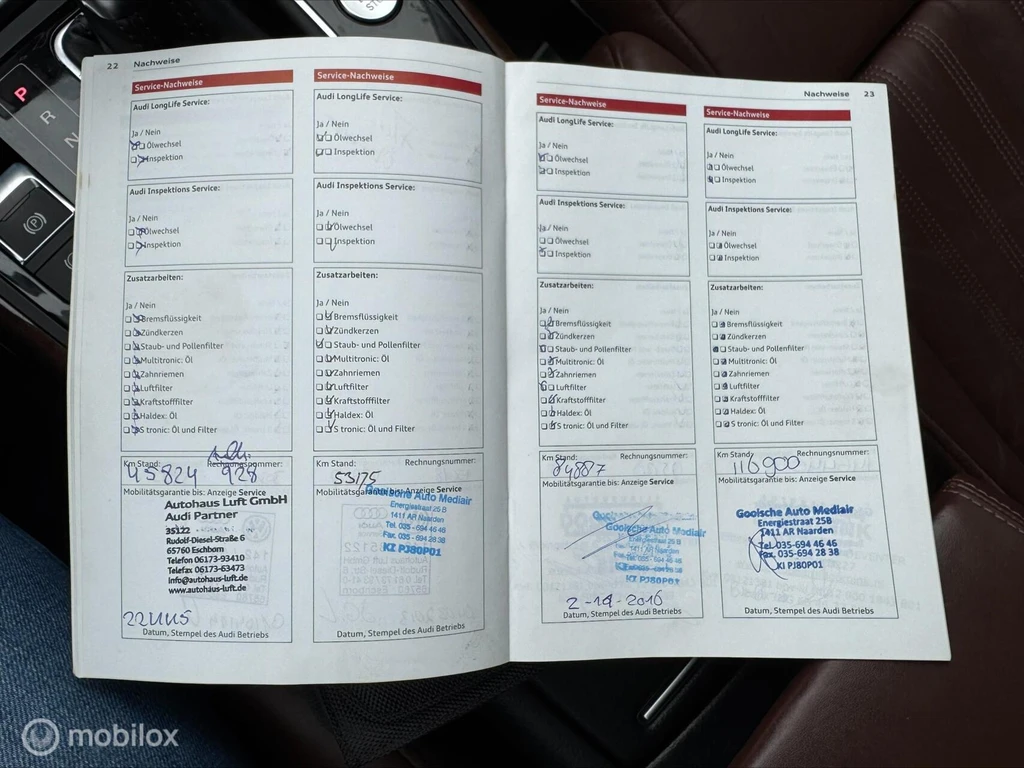 22 Nachweise
Service-Nachweise
Audi LongLife Service:
Ja / Nein
Ölwechsel
Inspektion
Audi Inspektions Service:
Ja / Nein
Ölwechsel
Inspektion
Zusatzarbeiten:
Ja / Nein
Bremsflüssigkeit
Zündkerzen
Staub- und Pollenfilter
Multitronic: Öl
Zahnriemen
Luftfilter
Kraftstofffilter
Haldex: Öl
S tronic: Öl und Filter
Km Stand: Rechnungsnummer:
45824 928
Mobilitätsgarantie bis: Anzeige Service
Autohaus Luft GmbH
Audi Partner
35122
Rudolf-Diesel-Straße 6
65760 Eschborn
Telefon 06173-93410
Telefax 06173-63473
info@autohaus-luft.de
www.autohaus-luft.de
Datum, Stempel des Audi Betriebs
Service-Nachweise
Audi LongLife Service:
Ja / Nein
Ölwechsel
Inspektion
Audi Inspektions Service:
Ja / Nein
Ölwechsel
Inspektion
Zusatzarbeiten:
Ja / Nein
Bremsflüssigkeit
Zündkerzen
Staub- und Pollenfilter
Multitronic: Öl
Zahnriemen
Luftfilter
Kraftstofffilter
Haldex: Öl
S tronic: Öl und Filter
Km Stand: Rechnungsnummer:
53175
Mobilitätsgarantie bis: Anzeige Service
Gooische Auto Mediair
Energiestraat 25 B
1411 AR Naarden
Tel. 035 - 694 46 46
Fax. 035 - 694 28 38
KZ PJ80P01
Datum, Stempel des Audi Betriebs
Nachweise 23
Service-Nachweise
Audi LongLife Service:
Ja / Nein
Ölwechsel
Inspektion
Audi Inspektions Service:
Ja / Nein
Ölwechsel
Inspektion
Zusatzarbeiten:
Ja / Nein
Bremsflüssigkeit
Zündkerzen
Staub- und Pollenfilter
Multitronic: Öl
Zahnriemen
Luftfilter
Kraftstofffilter
Haldex: Öl
S tronic: Öl und Filter
Km Stand: Rechnungsnummer:
Mobilitätsgarantie bis: Anzeige Service
Gooische Auto Mediair
Energiestraat 25 B
1411 AR Naarden
KZ PJ80P01
Datum, Stempel des Audi Betriebs
Service-Nachweise
Audi LongLife Service:
Ja / Nein
Ölwechsel
Inspektion
Audi Inspektions Service:
Ja / Nein
Ölwechsel
Inspektion
Zusatzarbeiten:
Ja / Nein
Bremsflüssigkeit
Zündkerzen
Staub- und Pollenfilter
Multitronic: Öl
Zahnriemen
Luftfilter
Kraftstofffilter
Haldex: Öl
S tronic: Öl und Filter
Km Stand: Rechnungsnummer:
116900
Mobilitätsgarantie bis: Anzeige Service
Gooische Auto Mediair
Energiestraat 25B
1411 AR Naarden
Tel. 035-694 46 46
Fax. 035-694 28 38
KI PJ80P01
Datum, Stempel des Audi Betriebs
P
R
N
STOP
mobilox